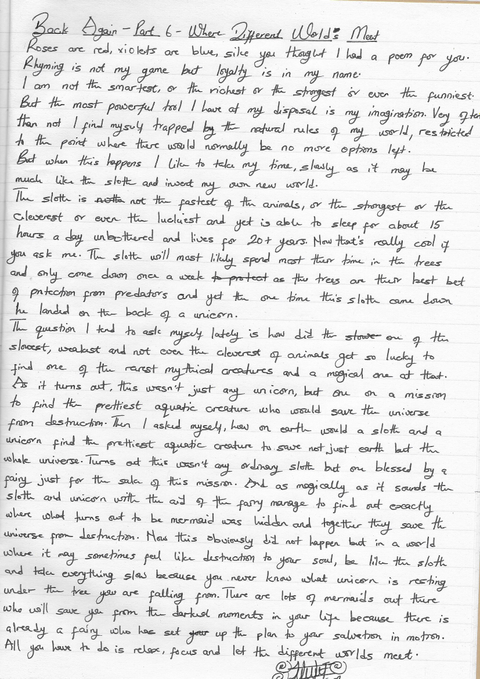 Back Again - Part 6 - Where Different World's Meet
Roses are red, violets are blue, silke you thought I had a poem for you.
Rhyming is not my game but loyalty is in my name.
I am not the smartest, or the richest or the strongest or even the funniest.
But the most powerful tool I have at my disposal is my imagination. Very often
than not I find myself trapped by the natural rules of my world, restricted
to the point where there would normally be no more options left.
But when this happens I like to take my time, slowly as it may be
much like the sloth and invent my own new world.
The sloth is not the fastest of the animals, or the strongest or the
cleverest or even the luckiest and yet is able to sleep for about 15
hours a day unbothered and lives for 20+ years. Now that's really cool if
you ask me. The sloth will most likely spend most their time in the trees
and only come down once a week to protect as the trees are their best bet
of protection from predators and yet the one time this sloth came down
he landed on the back of a unicorn.
The question I tend to ask myself lately is how did the slowe one of the
slowest, weakest and not even the cleverest of animals get so lucky to
find one of the rarest mythical creatures and a magical one at that.
As it turns out, this wasn't just any unicorn, but one on a mission
to find the prettiest aquatic creature who would save the universe
from destruction. Then I asked myself, how on earth would a sloth and a
unicorn find the prettiest aquatic creature to save not just earth but the
whole universe. Turns out this wasn't any ordinary sloth but one blessed by a
fairy just for the sake of this mission. And as magically as it sounds the
sloth and unicorn with the aid of the fairy manage to find out exactly
where what turns out to be mermaid was hidden and together they save the
universe from destruction. Now this obviously did not happen but in a world
where it may sometimes feel like destruction to your soul, be like the sloth
and take everything slow because you never know what unicorn is resting
under the tree you are falling from. There are lots of mermaids out there
who will save you from the darkest moments in your life because there is
already a fairy who has set your up the plan to your salvation in motion.
All you have to do is relax, focus and let the different worlds meet.